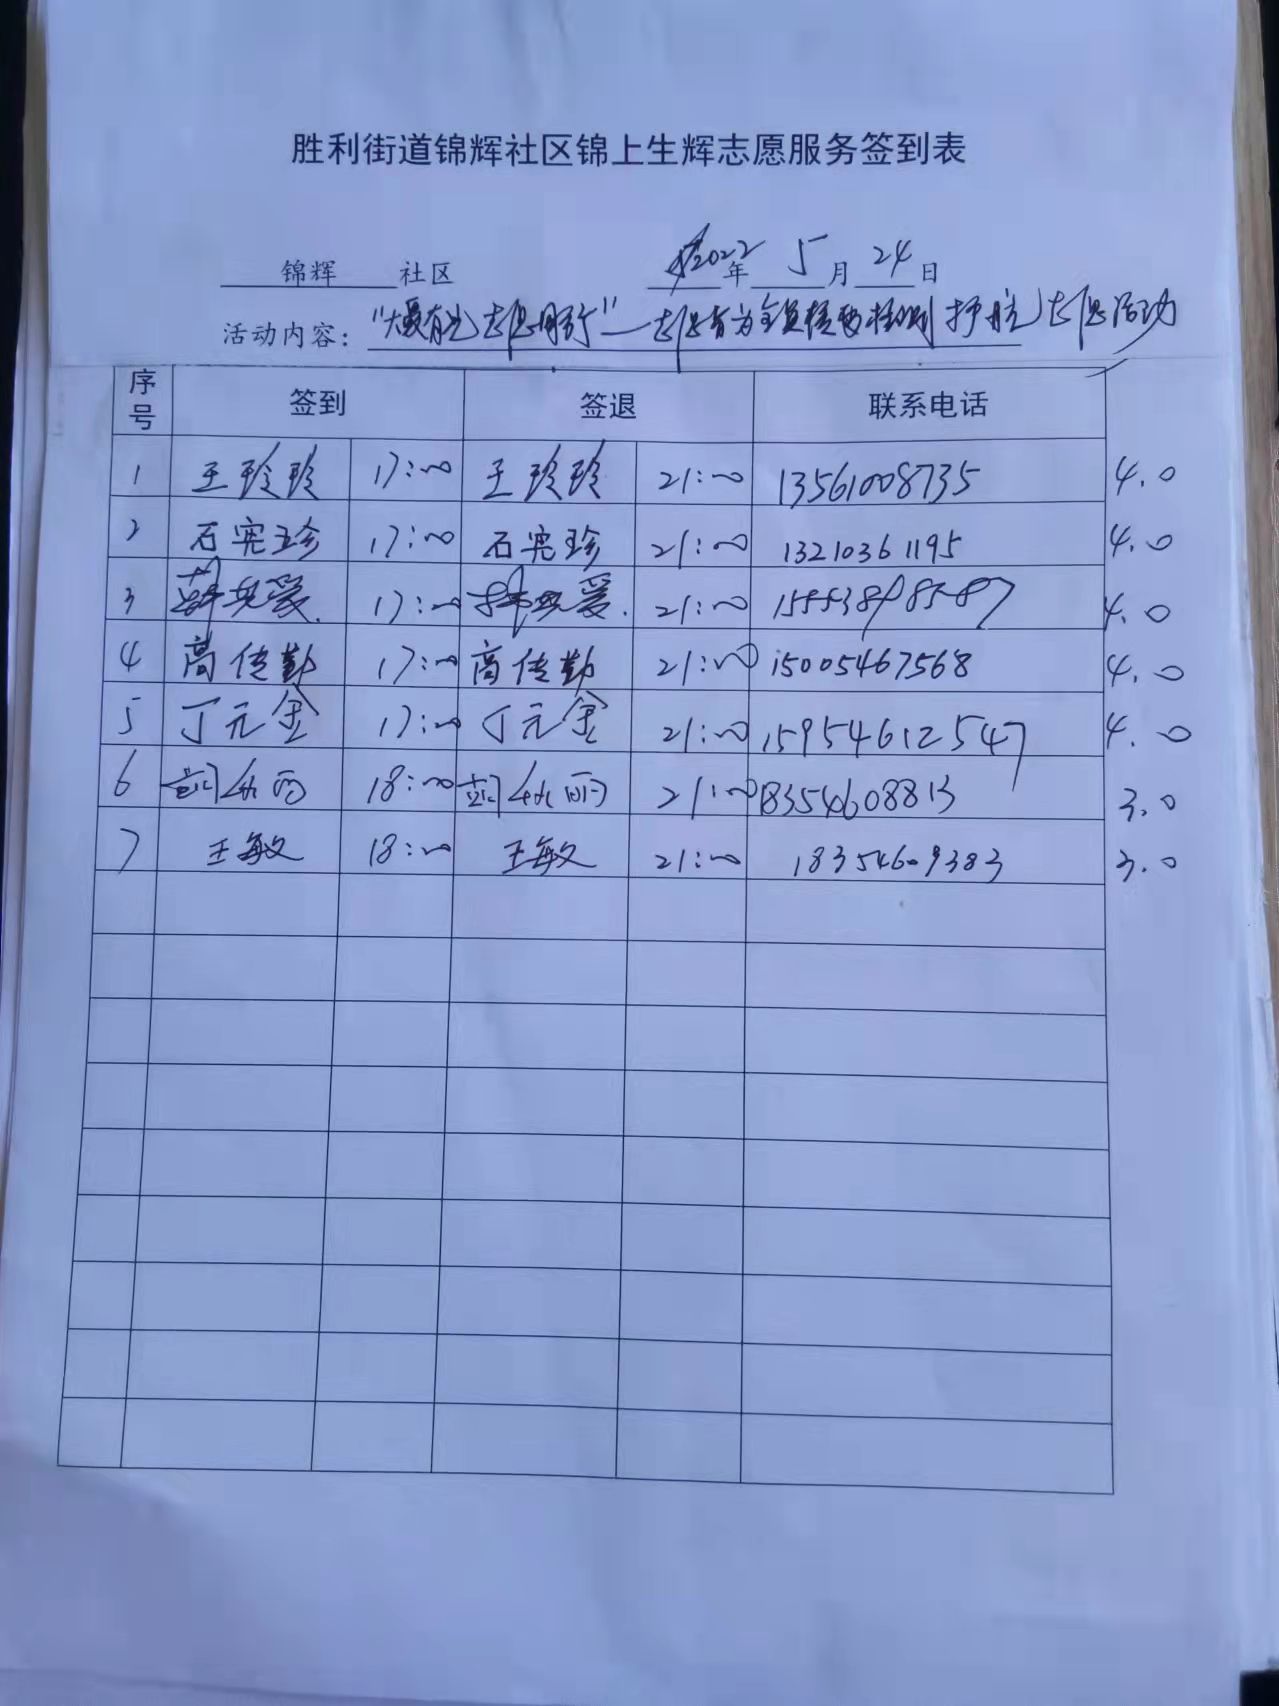 胜利街道锦辉社区锦上生辉志愿服务签到表
锦辉 社区 2022年 5月 24日
活动内容：“大爱有光 志愿同行”—志愿者为全员核酸检测护航志愿活动
序号 签到 签退 联系电话
1 王玲玲 17:00 王玲玲 21:00 13561008735 4.0
2 石宪珍 17:00 石宪珍 21:00 13210361195 4.0
3 17:00 21:00 4.0
4 高传勤 17:00 高传勤 21:00 15005467568 4.0
5 丁元金 17:00 丁元金 21:00 15954612547 4.0
6 18:00 21:00 18354608813 3.0
7 王敏 18:00 王敏 21:00 18354609383 3.0